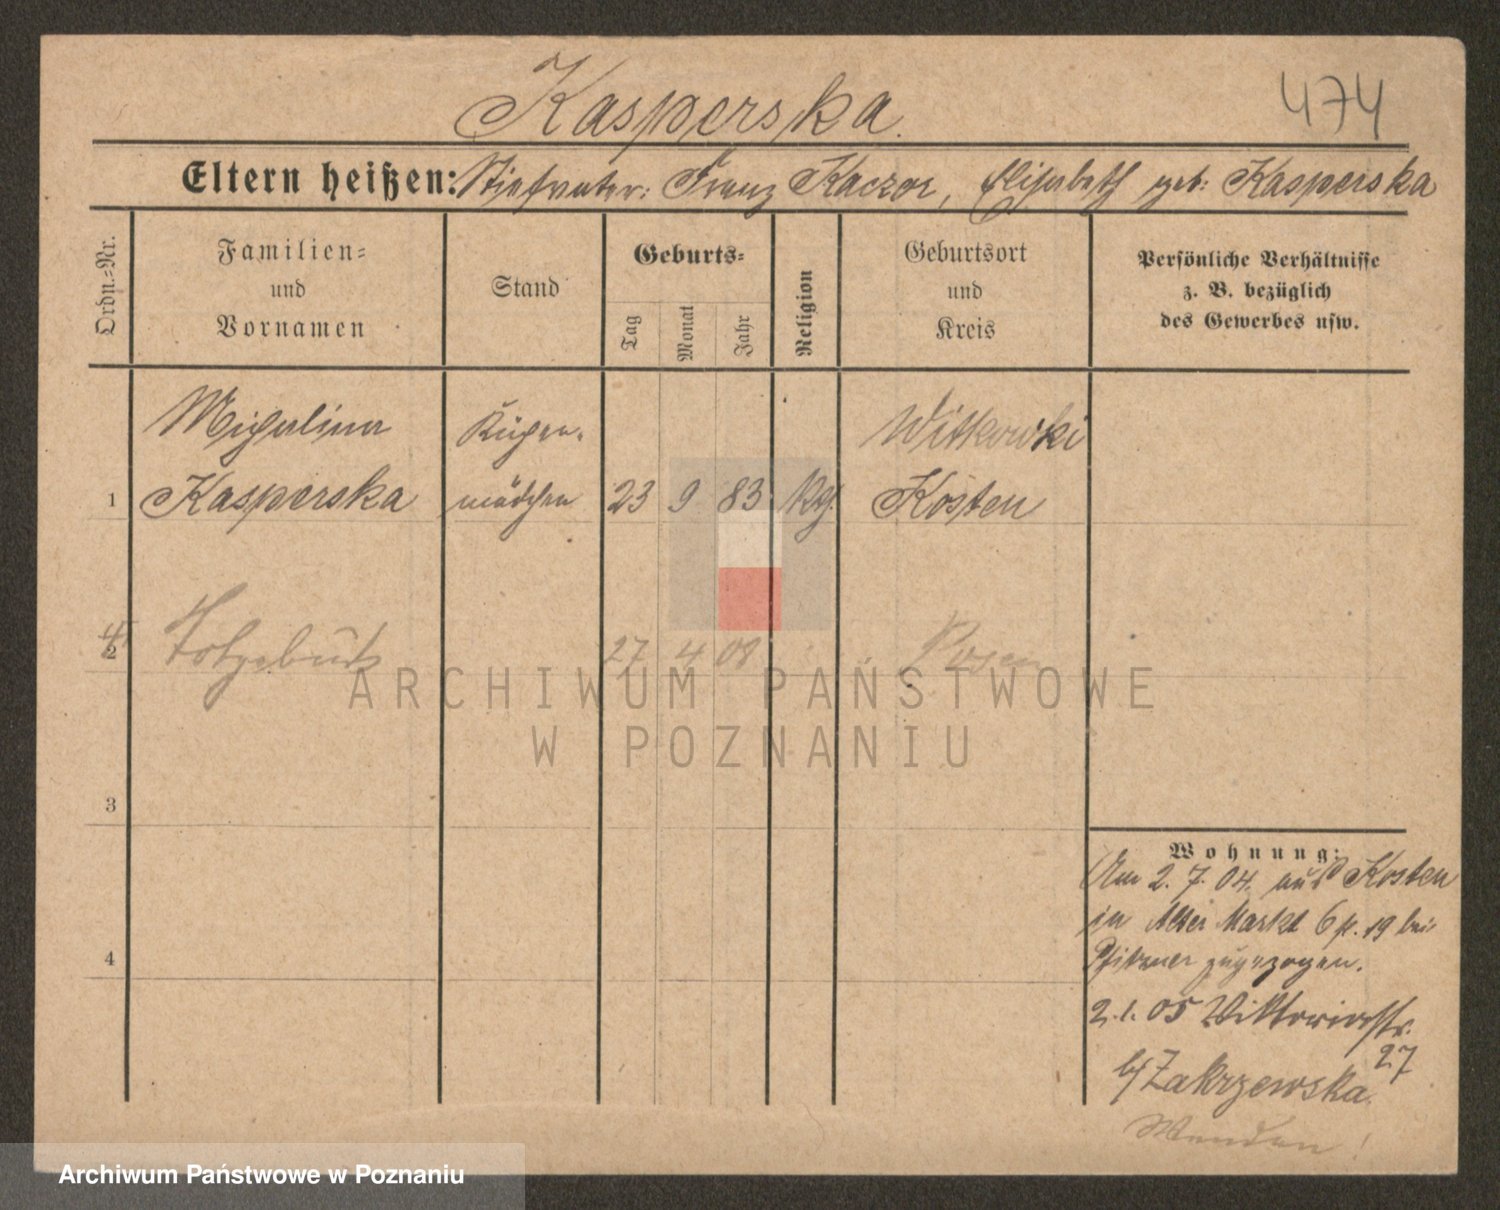 Kasperska.
474
Eltern heißen: Stiefvater: Franz Kaczor, Elisabeth geb: Kasperska
Ordn.-Nr.
Familien-
und
Vornamen
Stand
Geburts-
Tag
Monat
Jahr
Religion
Geburtsort
und
Kreis
Persönliche Verhältnisse
z. B. bezüglich
des Gewerbes usw.
Küchen-
Witkowki
1 Kasperska mädchen 23 9 83 Kth. Kosten
2 Totgeburt 27 4 08 Posen
3
4
Wohnung:
Am 2. 7. 04. aus Kosten
in Alter Markt 6 p. 19 bei
zugezogen.
2.1.05 Viktoriastr.
27
b/ Zakrzewska.
Wenden!
ARCHIWUM PAŃSTWOWE
W POZNANIU
Archiwum Państwowe w Poznaniu